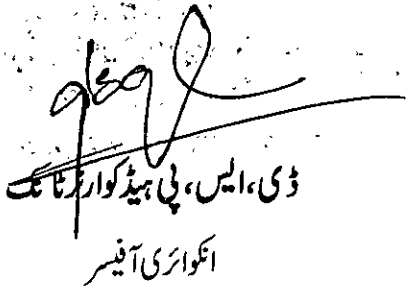 ڈی، ایس، پی ہیڈکوارٹر ٹانک
انکوائری آفیسر